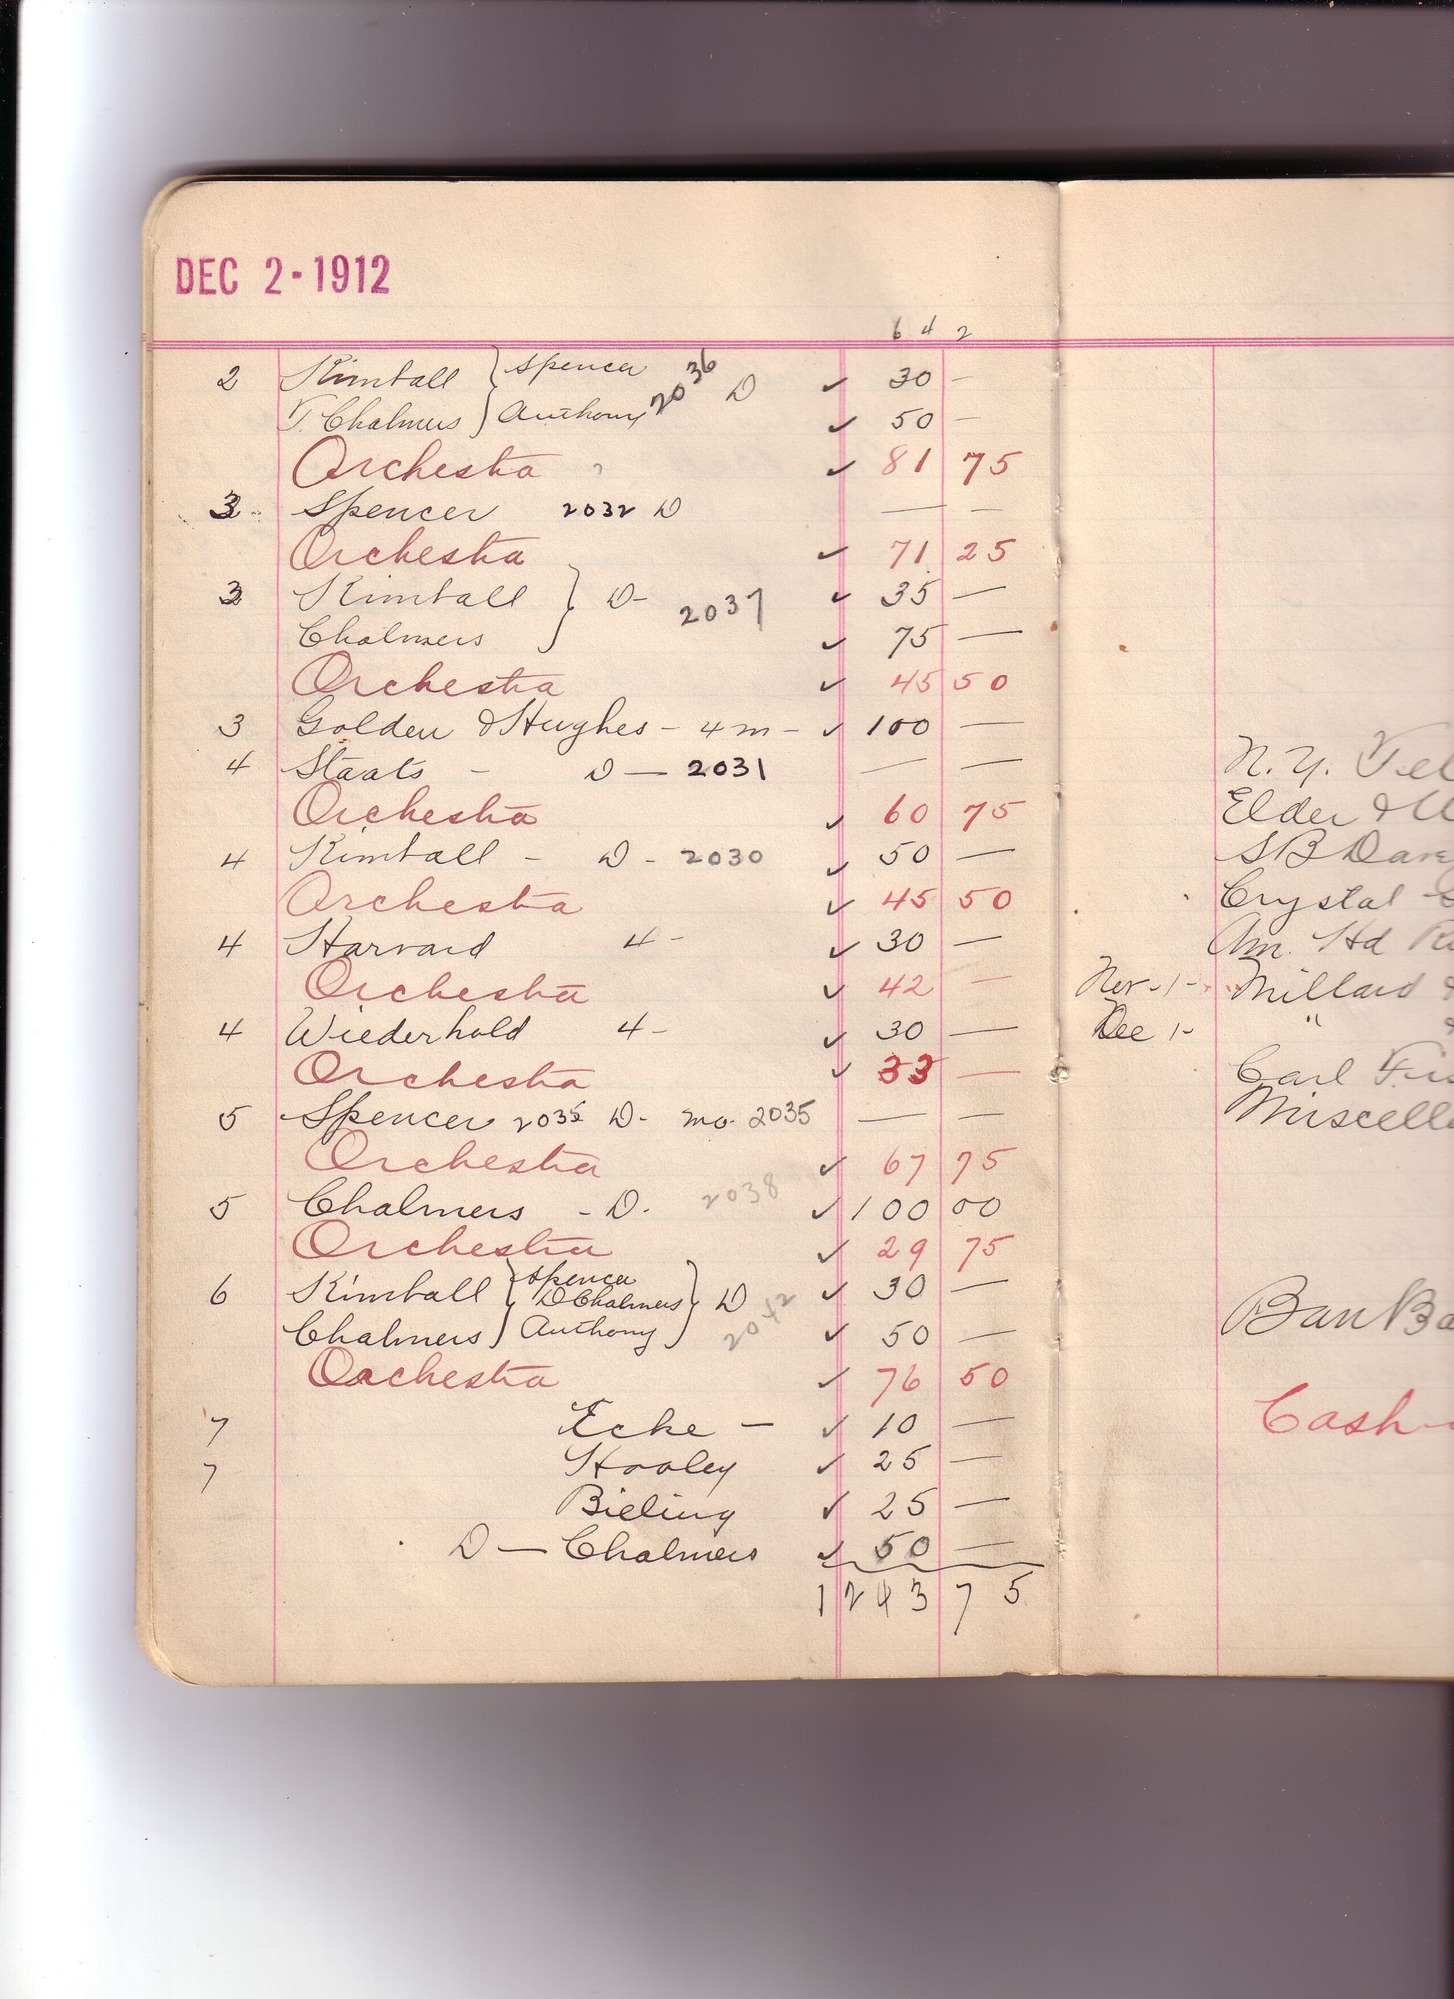 DEC 2-1912
6 4 2
2 Kimball } Spencer 2036 D ✓ 30 —
T. Chalmers } Anthony ✓ 50 —
Orchestra ✓ 81 75
3 Spencer 2032 D — —
Orchestra ✓ 71 25
3 Kimball } D- 2037 ✓ 35 —
Chalmers } ✓ 75 —
Orchestra ✓ 45 50
3 Golden & Hughes - 4 m - ✓ 100 —
4 Staats - D — 2031 — —
Orchestra ✓ 60 75
4 Kimball - D - 2030 ✓ 50 —
Orchestra ✓ 45 50
4 Harvard 4 - ✓ 30 —
Orchestra ✓ 42 —
4 Wiederhold 4 - ✓ 30 —
Orchestra ✓ 33 —
5 Spencer 2035 D. mo. 2035 — —
Orchestra ✓ 67 75
5 Chalmers - D. 2038 ✓ 100 00
Orchestra ✓ 29 75
6 Kimball } Spencer D Chalmers } D 2042 ✓ 30 —
Chalmers } Anthony ✓ 50 —
Orchestra ✓ 76 50
7 Ecke — ✓ 10 —
7 Hooley ✓ 25 —
Bieling ✓ 25 —
D — Chalmers ✓ 50 —
1243 75
N. Y. Tel
Elder &
S B Dav
Crystal
Am. Hd R
Nov - 1 - Millard
Dec 1 - "
Carl Fis
Miscell
Ban Ba
Cash